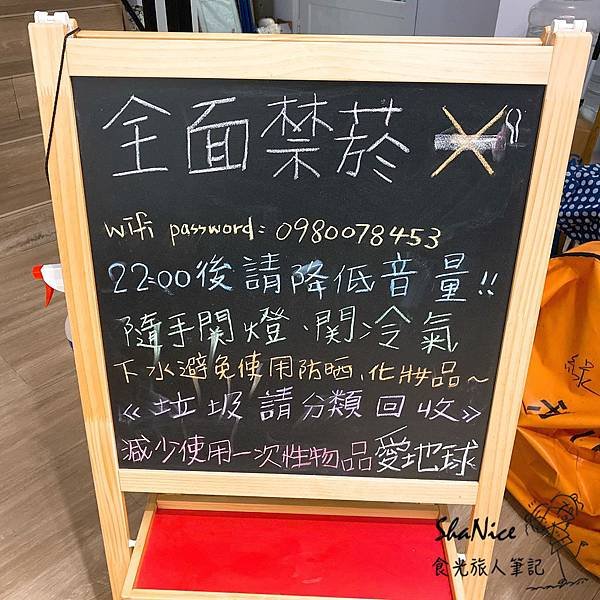 全面禁菸
wifi password: 0980078453
22:00後請降低音量!!
隨手関燈、関冷氣
下水避免使用防晒、化妝品~
《垃圾請分類回收》
減少使用一次性物品愛地球
ShaNice
食光旅人筆記